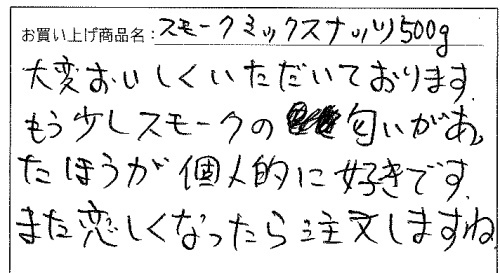 お買い上げ商品名：スモークミックスナッツ500g
大変おいしくいただいております。
もう少しスモークの匂いがあっ
たほうが個人的に好きです。
また恋しくなったら注文しますね